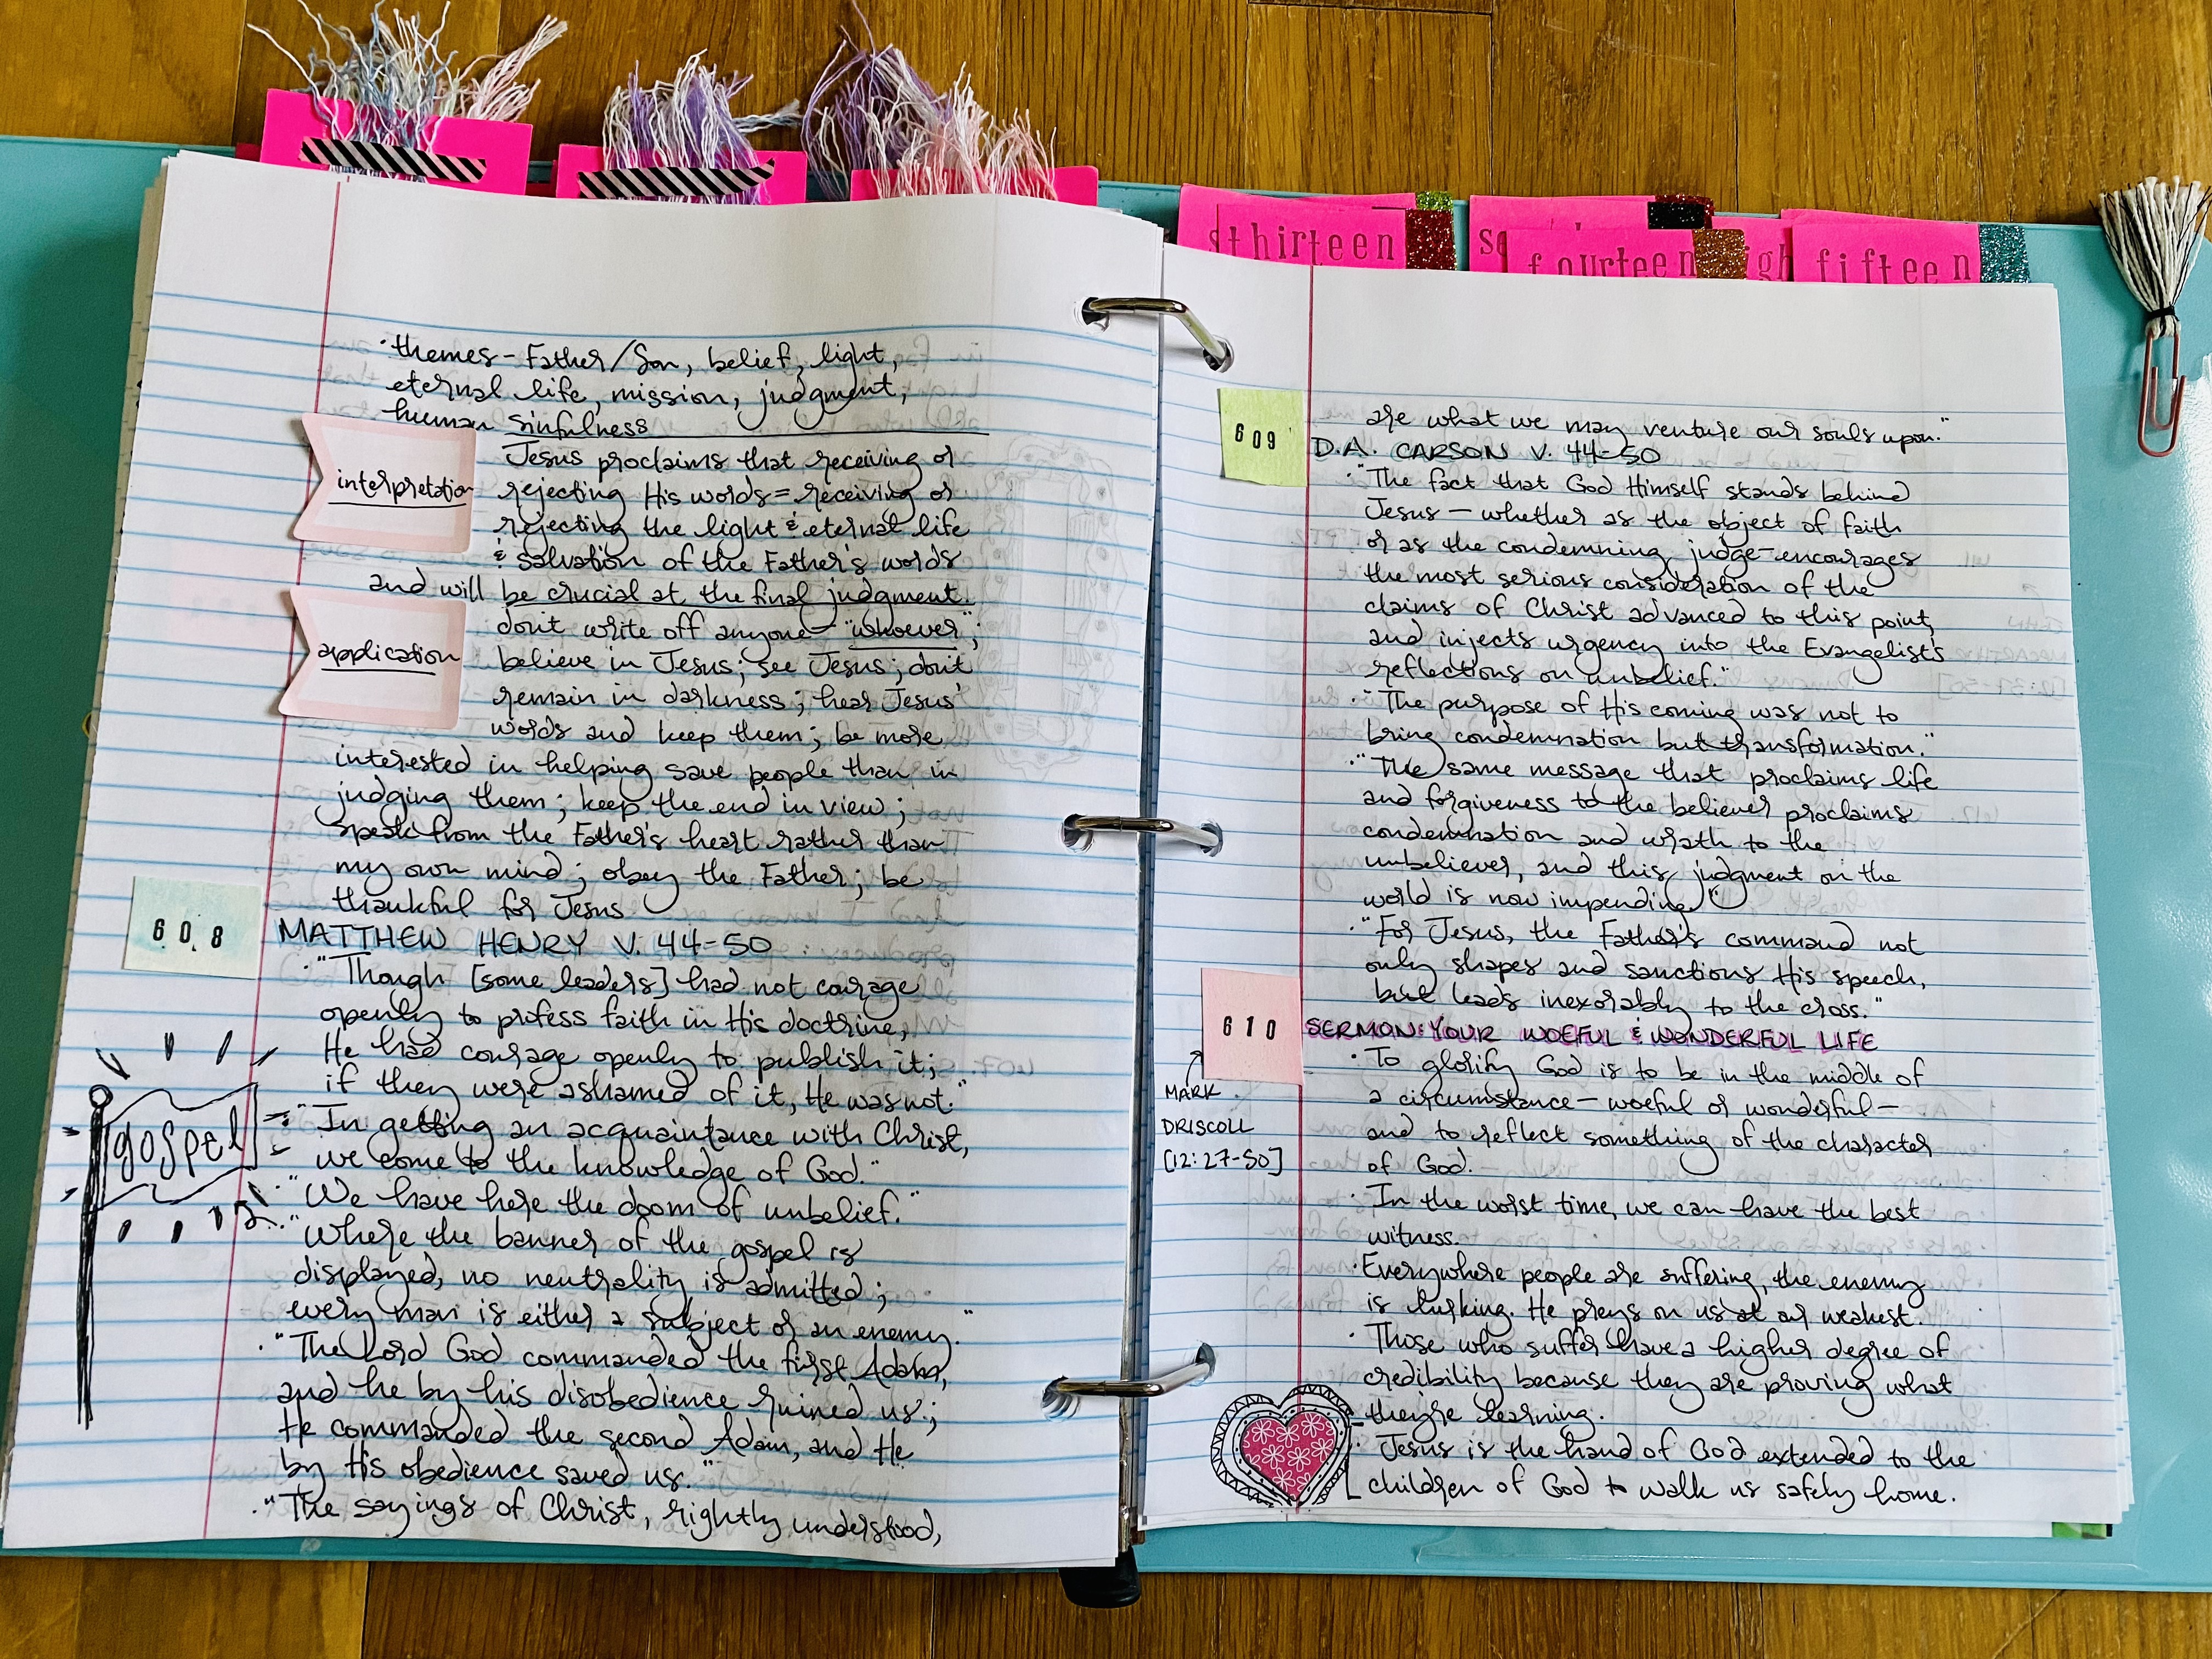 thirteen
fourteen
fifteen
·themes - Father/Son, belief, light,
eternal life, mission, judgment,
human sinfulness
interpretation
Jesus proclaims that receiving or
rejecting His words = receiving or
rejecting the light & eternal life
& salvation of the Father's words
and will be crucial at the final judgment.
application
don't write off anyone - "whoever";
believe in Jesus; see Jesus; don't
remain in darkness; hear Jesus'
words and keep them; be more
interested in helping save people than in
judging them; keep the end in view;
speak from the Father's heart rather than
my own mind; obey the Father; be
thankful for Jesus
608
MATTHEW HENRY V. 44-50
·"Though [some leaders] had not courage
openly to profess faith in His doctrine,
He had courage openly to publish it;
if they were ashamed of it, He was not."
·"In getting an acquaintance with Christ,
we come to the knowledge of God."
·"We have here the doom of unbelief."
·"Where the banner of the gospel is
displayed, no neutrality is admitted;
every man is either a subject or an enemy."
·"The Lord God commanded the first Adam,
and he by his disobedience ruined us;
He commanded the second Adam, and He
by His obedience saved us."
·"The sayings of Christ, rightly understood,
gospel
are what we may venture our souls upon."
609
D.A. CARSON V. 44-50
·"The fact that God Himself stands behind
Jesus - whether as the object of faith
or as the condemning judge - encourages
the most serious consideration of the
claims of Christ advanced to this point,
and injects urgency into the Evangelist's
reflections on unbelief."
·"The purpose of His coming was not to
bring condemnation but transformation."
·"The same message that proclaims life
and forgiveness to the believer proclaims
condemnation and wrath to the
unbeliever, and this judgment on the
world is now impending."
·"For Jesus, the Father's command not
only shapes and sanctions His speech,
but leads inexorably to the cross."
610
SERMON: YOUR WOEFUL & WONDERFUL LIFE
MARK
DRISCOLL
[12:27-50]
·To glorify God is to be in the middle of
a circumstance - woeful or wonderful -
and to reflect something of the character
of God.
·In the worst time, we can have the best
witness.
·Everywhere people are suffering, the enemy
is lurking. He preys on us at our weakest.
·Those who suffer have a higher degree of
credibility because they are proving what
they're learning.
·Jesus is the hand of God extended to the
children of God to walk us safely home.